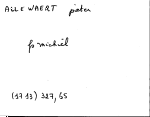 AILLEWAERT pieter
fs michiel
(1713) 327, 65